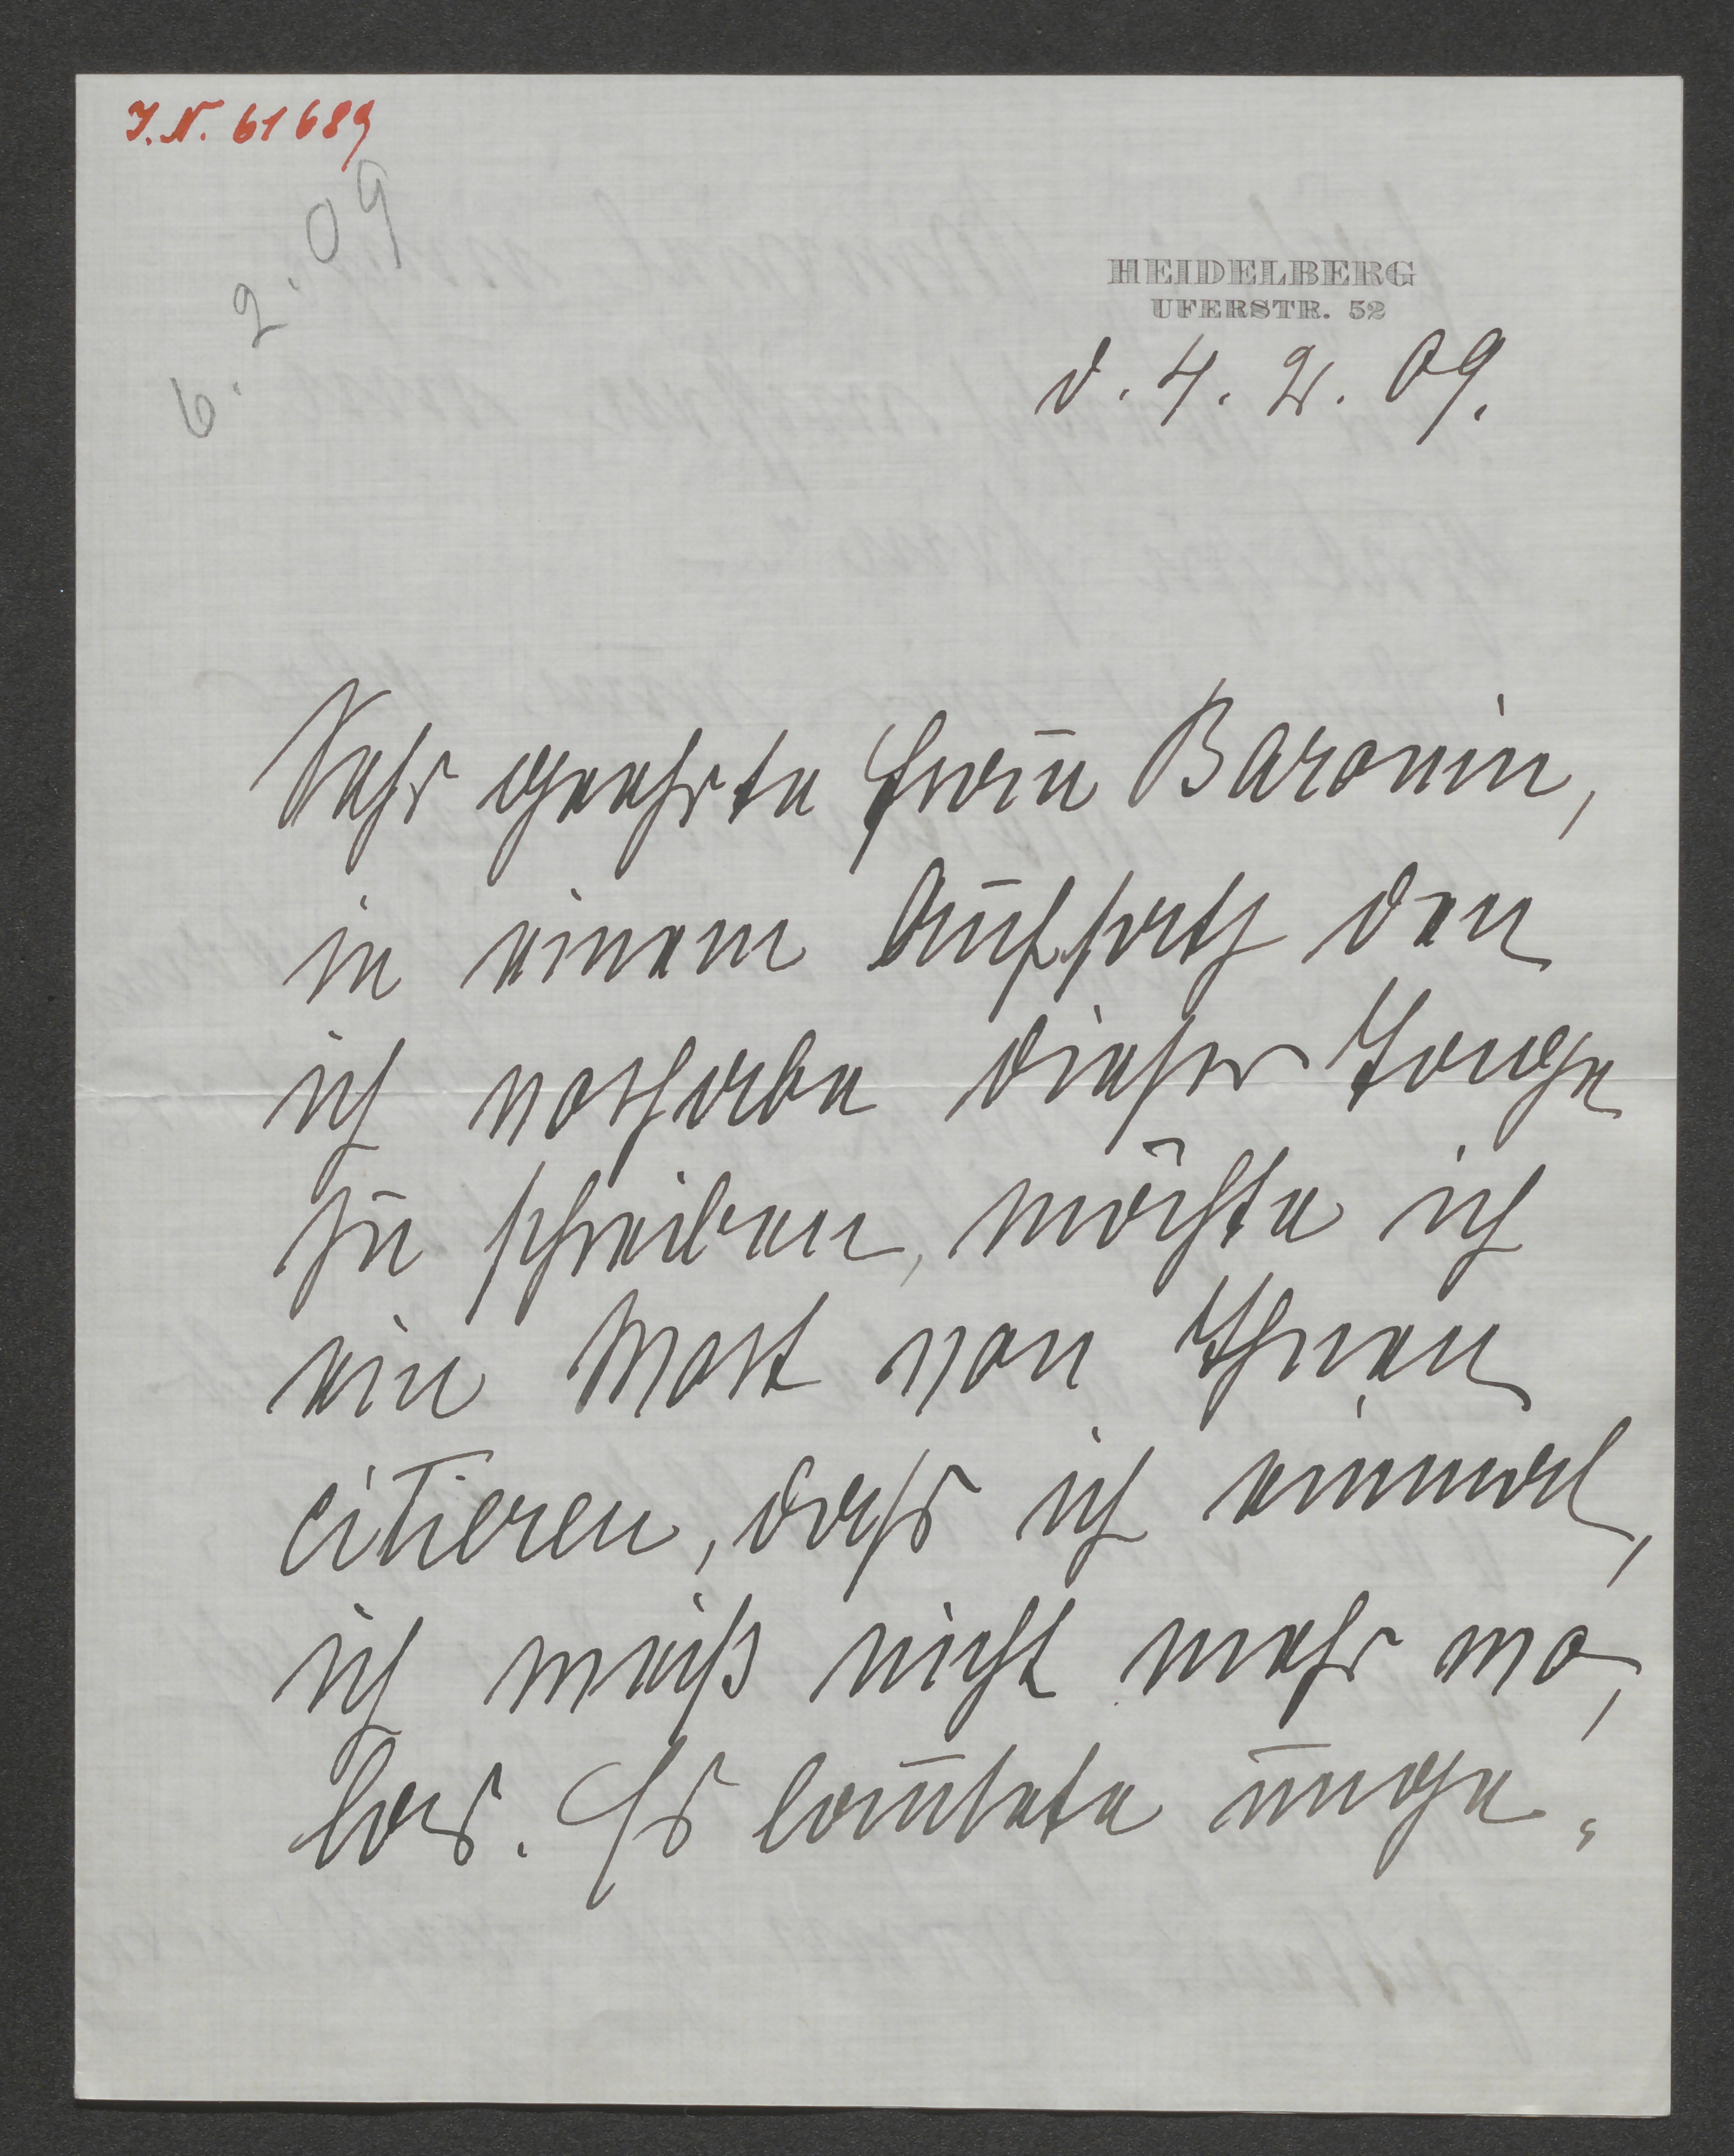 I.N. 61689
6.2.09
HEIDELBERG
UFERSTR. 52
d. 4. 2. 09.
Sehr geehrte Frau Baronin,
in einem Aufsatz den
ich vorhabe dieser Tage
zu schreiben, möchte ich
ein Wort von Ihnen
citieren, dass ich einmal,
ich weiß nicht mehr wo,
las. Es lautete unge-